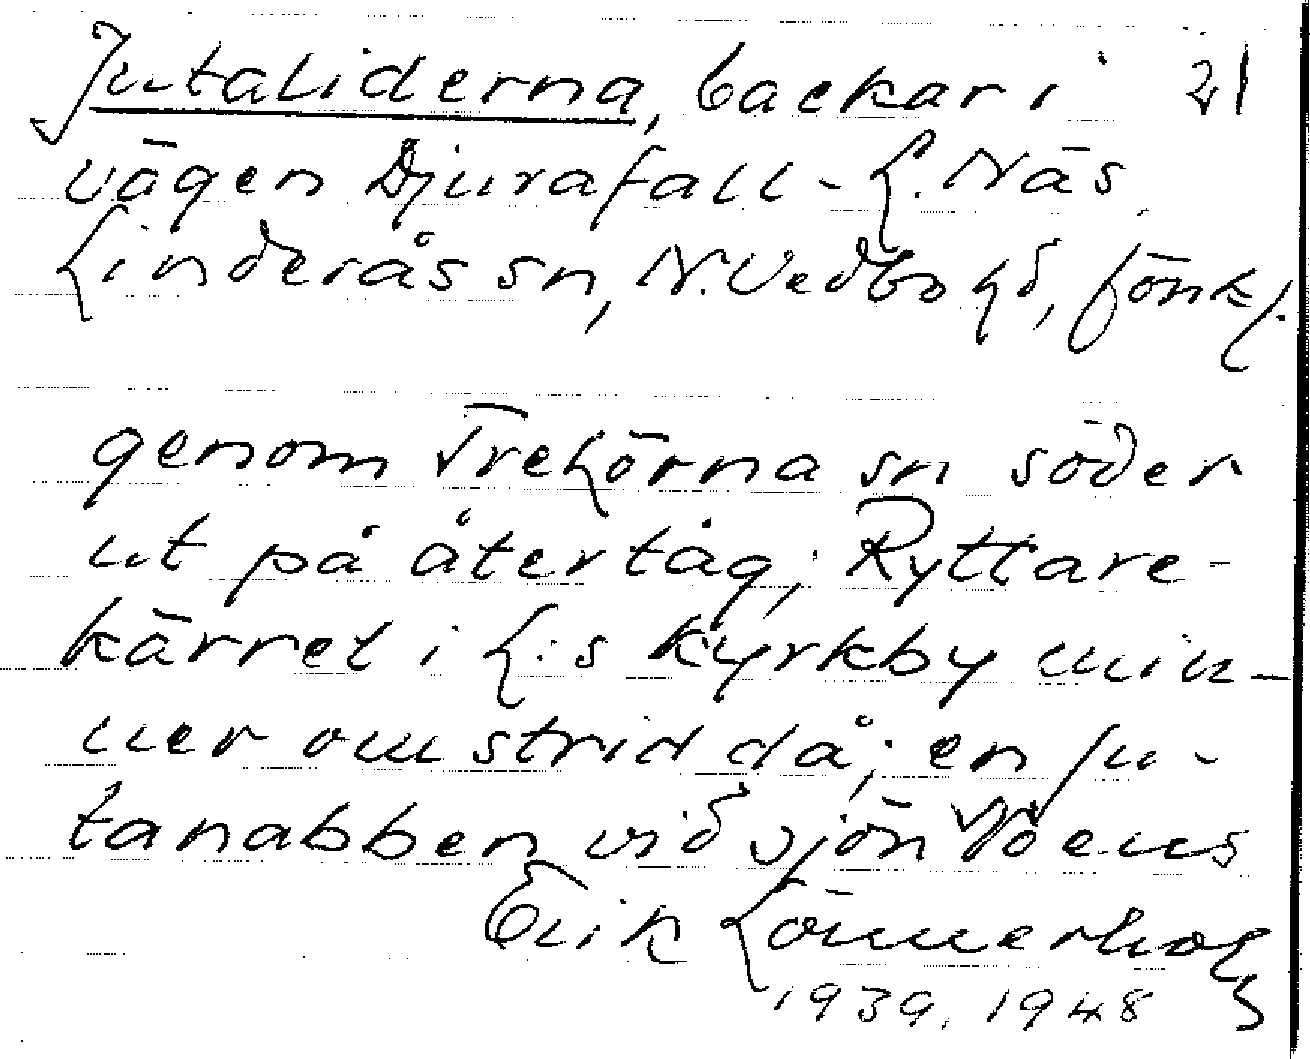 Jutaliderna, backar i 21
vägen Djurafall - L. Näs
Linderås sn, N. Vedbo hd, Jönk.l.
genom Trehörna sn söder
ut på återtåg; Ryttare-
kärret i L:s kyrkby min-
ner om strid då; en Ju-
tanabben vid sjön Nöens
Erik Lönnerholm
1939. 1948